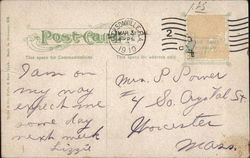 125
Post Card
JACKSONVILLE, FLA.
MAR 3
1910
2
This space for Communications
This space for address only
I am on
my way
expect me
some day
next week
Lizzie
Mrs. P. Power
# 4 So. Crystal St
Worcester
Mass.